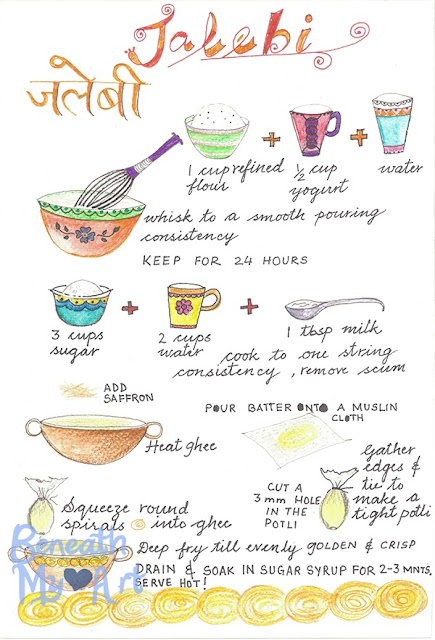 Jalebi
जलेबी
1 cup refined flour
+
½ cup yogurt
+
water
whisk to a smooth pouring
consistency
KEEP FOR 24 HOURS
3 cups
sugar
+
2 cups
water
+
1 tbsp milk
cook to one string
consistency, remove scum
ADD
SAFFRON
Heat ghee
POUR BATTER ONTO A MUSLIN
CLOTH
Gather
edges &
tie to
make a
tight potli
CUT A
3 mm HOLE
IN THE
POTLI
Squeeze round
spirals into ghee
Deep fry till evenly GOLDEN & CRISP
DRAIN & SOAK IN SUGAR SYRUP FOR 2-3 MNTS.
SERVE HOT!
Beneath
My Art